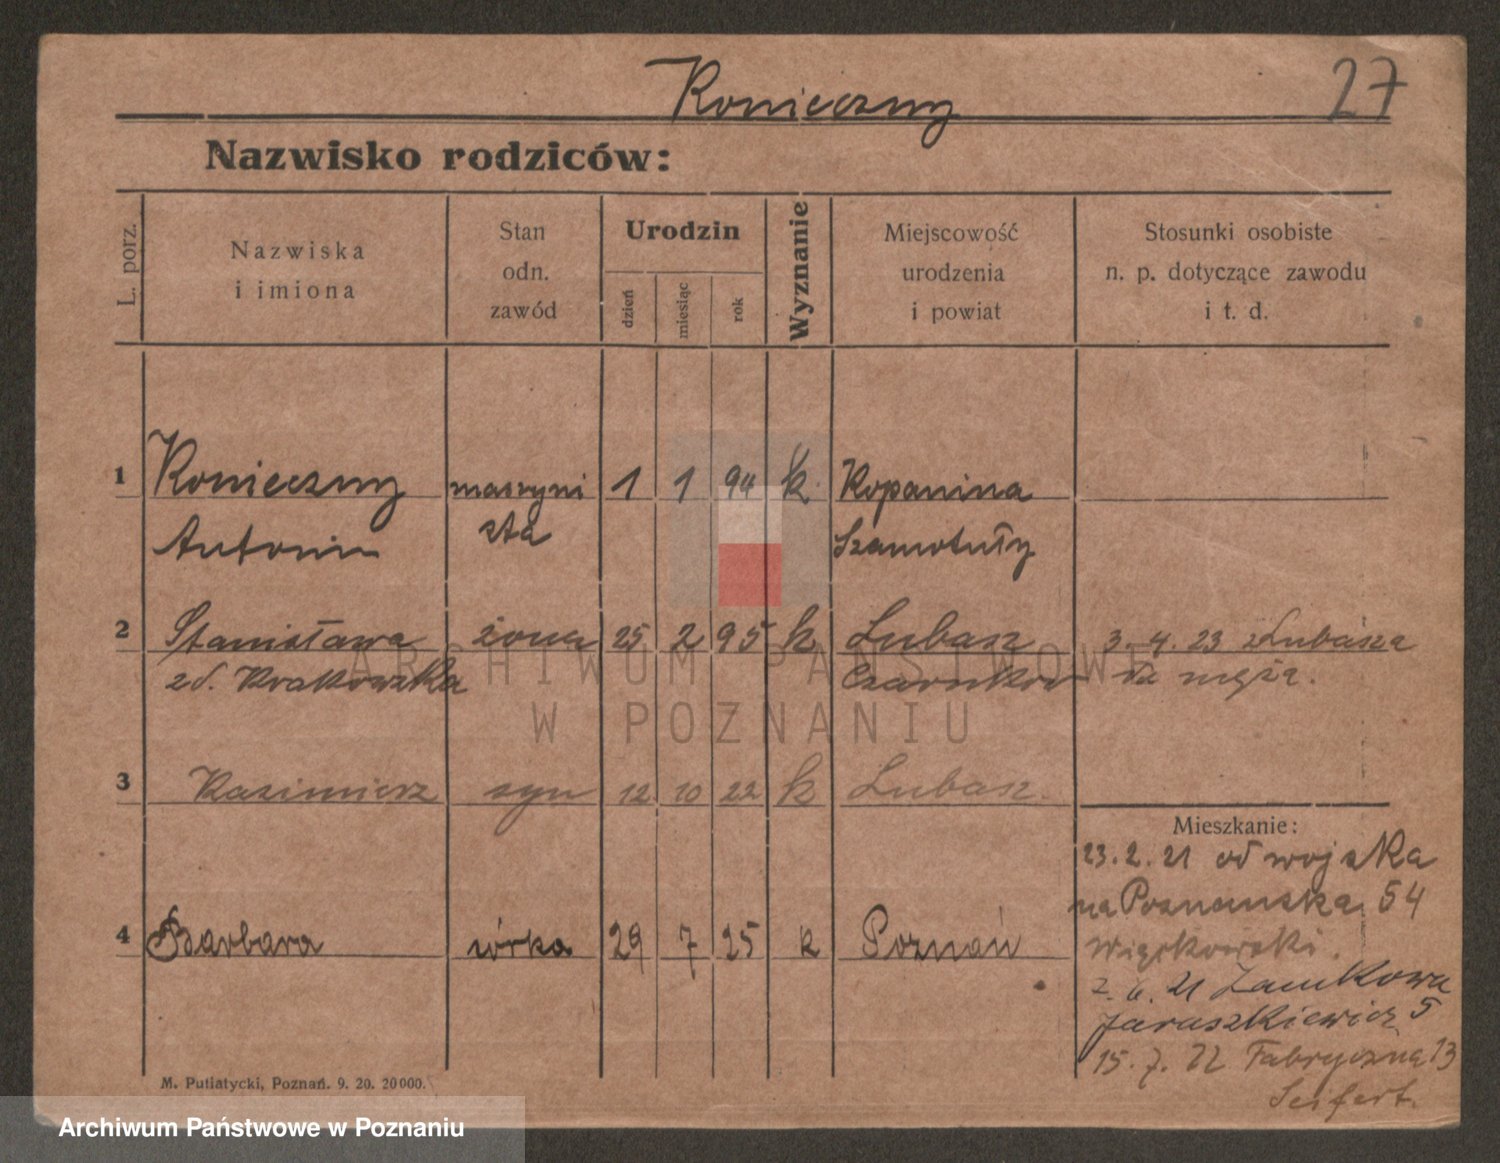 Konieczny
27
Nazwisko rodziców:
L. porz.
Nazwiska
i imiona
Stan
odn.
zawód
Urodzin
dzień
miesiąc
rok
Wyznanie
Miejscowość
urodzenia
i powiat
Stosunki osobiste
n. p. dotyczące zawodu
i t. d.
1 Konieczny maszyni 1 1 94 k. Kopanina
Antonin sta Szamotuły
2 Stanisława żona 25 2 95 k Lubasz 3. 4. 23 z Lubasza
zd. Krakowska Czarnków do męża.
3 Kazimierz syn 12 10 22 k Lubasz.
Mieszkanie:
23. 2. 21 od wojska
na Poznanska 54
4 Barbara córka 29 7 25 k Poznań
Więckowski.
2. 6. 21 Zamkowa
Jaruszkiewicz 5
15. 7. 22 Fabryczna 13
Seifert.
M. Putiatycki, Poznań. 9. 20. 20000.
ARCHIWUM PAŃSTWOWE
W POZNANIU
Archiwum Państwowe w Poznaniu